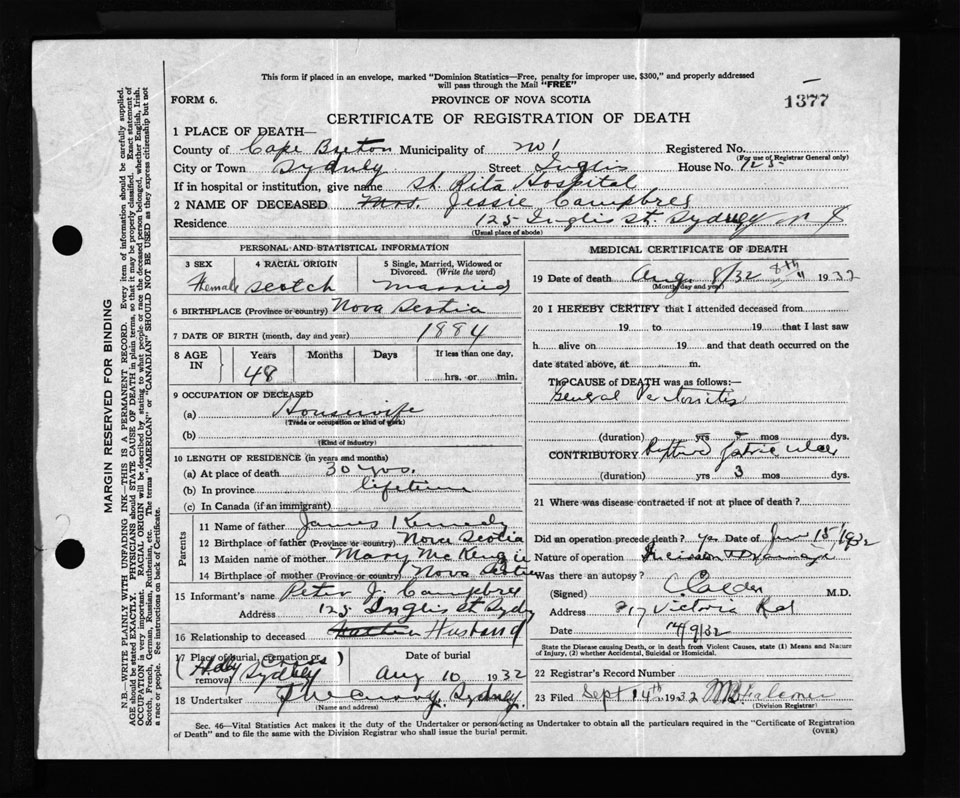 This form if placed in an envelope, marked "Dominion Statistics—Free, penalty for improper use, $300," and properly addressed
will pass through the Mail "FREE"
FORM 6.
PROVINCE OF NOVA SCOTIA
1377
CERTIFICATE OF REGISTRATION OF DEATH
1 PLACE OF DEATH—
County of Cape Breton Municipality of No 1 Registered No.
(For use of Registrar General only)
City or Town Sydney Street Inglis House No. 125
If in hospital or institution, give name St. Rita Hospital
2 NAME OF DECEASED Mrs. Jessie Campbell
Residence 125 Inglis St. Sydney N S
(Usual place of abode)
PERSONAL AND STATISTICAL INFORMATION
3 SEX 4 RACIAL ORIGIN 5 Single, Married, Widowed or
Divorced. (Write the word)
Female Scotch Married
6 BIRTHPLACE (Province or country) Nova Scotia
7 DATE OF BIRTH (month, day and year) 1884
8 AGE IN Years Months Days If less than one day,
48 hrs. or min.
9 OCCUPATION OF DECEASED
(a) Housewife
(Trade or occupation or kind of work)
(b)
(Kind of industry)
10 LENGTH OF RESIDENCE (in years and months)
(a) At place of death 30 yrs.
(b) In province lifetime
(c) In Canada (if an immigrant)
Parents
11 Name of father James Kennedy
12 Birthplace of father (Province or country) Nova Scotia
13 Maiden name of mother Mary McKenzie
14 Birthplace of mother (Province or country) Nova Scotia
15 Informant's name Peter J. Campbell
Address 125 Inglis St Sydney
16 Relationship to deceased Husband
17 Place of burial, cremation or removal Holy Cross Sydney Date of burial Aug 10 1932
18 Undertaker Sydney
(Name and address)
MEDICAL CERTIFICATE OF DEATH
19 Date of death Aug 8/32 8th 1932
(Month, day and year)
20 I HEREBY CERTIFY that I attended deceased from
19 to 19 that I last saw
h alive on 19 and that death occurred on the
date stated above, at m.
The CAUSE OF DEATH was as follows:—
General Peritonitis
(duration) yrs mos dys.
CONTRIBUTORY Ruptured Gastric ulcer
(duration) yrs 3 mos dys.
21 Where was disease contracted if not at place of death?
Did an operation precede death? yes Date of June 15/1932
Nature of operation Incision & Drainage
Was there an autopsy?
(Signed) C Calder M.D.
Address 217 Victoria Rd
Date 14/9/32
State the Disease causing Death, or in deaths from Violent Causes, state (1) Means and Nature
of Injury, (2) whether Accidental, Suicidal or Homicidal.
22 Registrar's Record Number
23 Filed Sept 14th 1932
(Division Registrar)
Sec. 46—Vital Statistics Act makes it the duty of the Undertaker or person acting as Undertaker to obtain all the particulars required in the "Certificate of Registration
of Death" and to file the same with the Division Registrar who shall issue the burial permit.
(OVER)
MARGIN RESERVED FOR BINDING
N.B.—WRITE PLAINLY WITH UNFADING INK—THIS IS A PERMANENT RECORD. Every item of information should be carefully supplied.
AGE should be stated EXACTLY. PHYSICIANS should STATE CAUSE OF DEATH in plain terms, so that it may be properly classified. Exact statement of
OCCUPATION is very important. RACIAL ORIGIN will be described by stating to what people or race the deceased person belonged, whether English, Irish,
Scotch, French, German, Russian, Ruthenian, etc. The terms "AMERICAN" or "CANADIAN" SHOULD NOT BE USED as they express citizenship but not
a race or people. See instructions on back of Certificate.